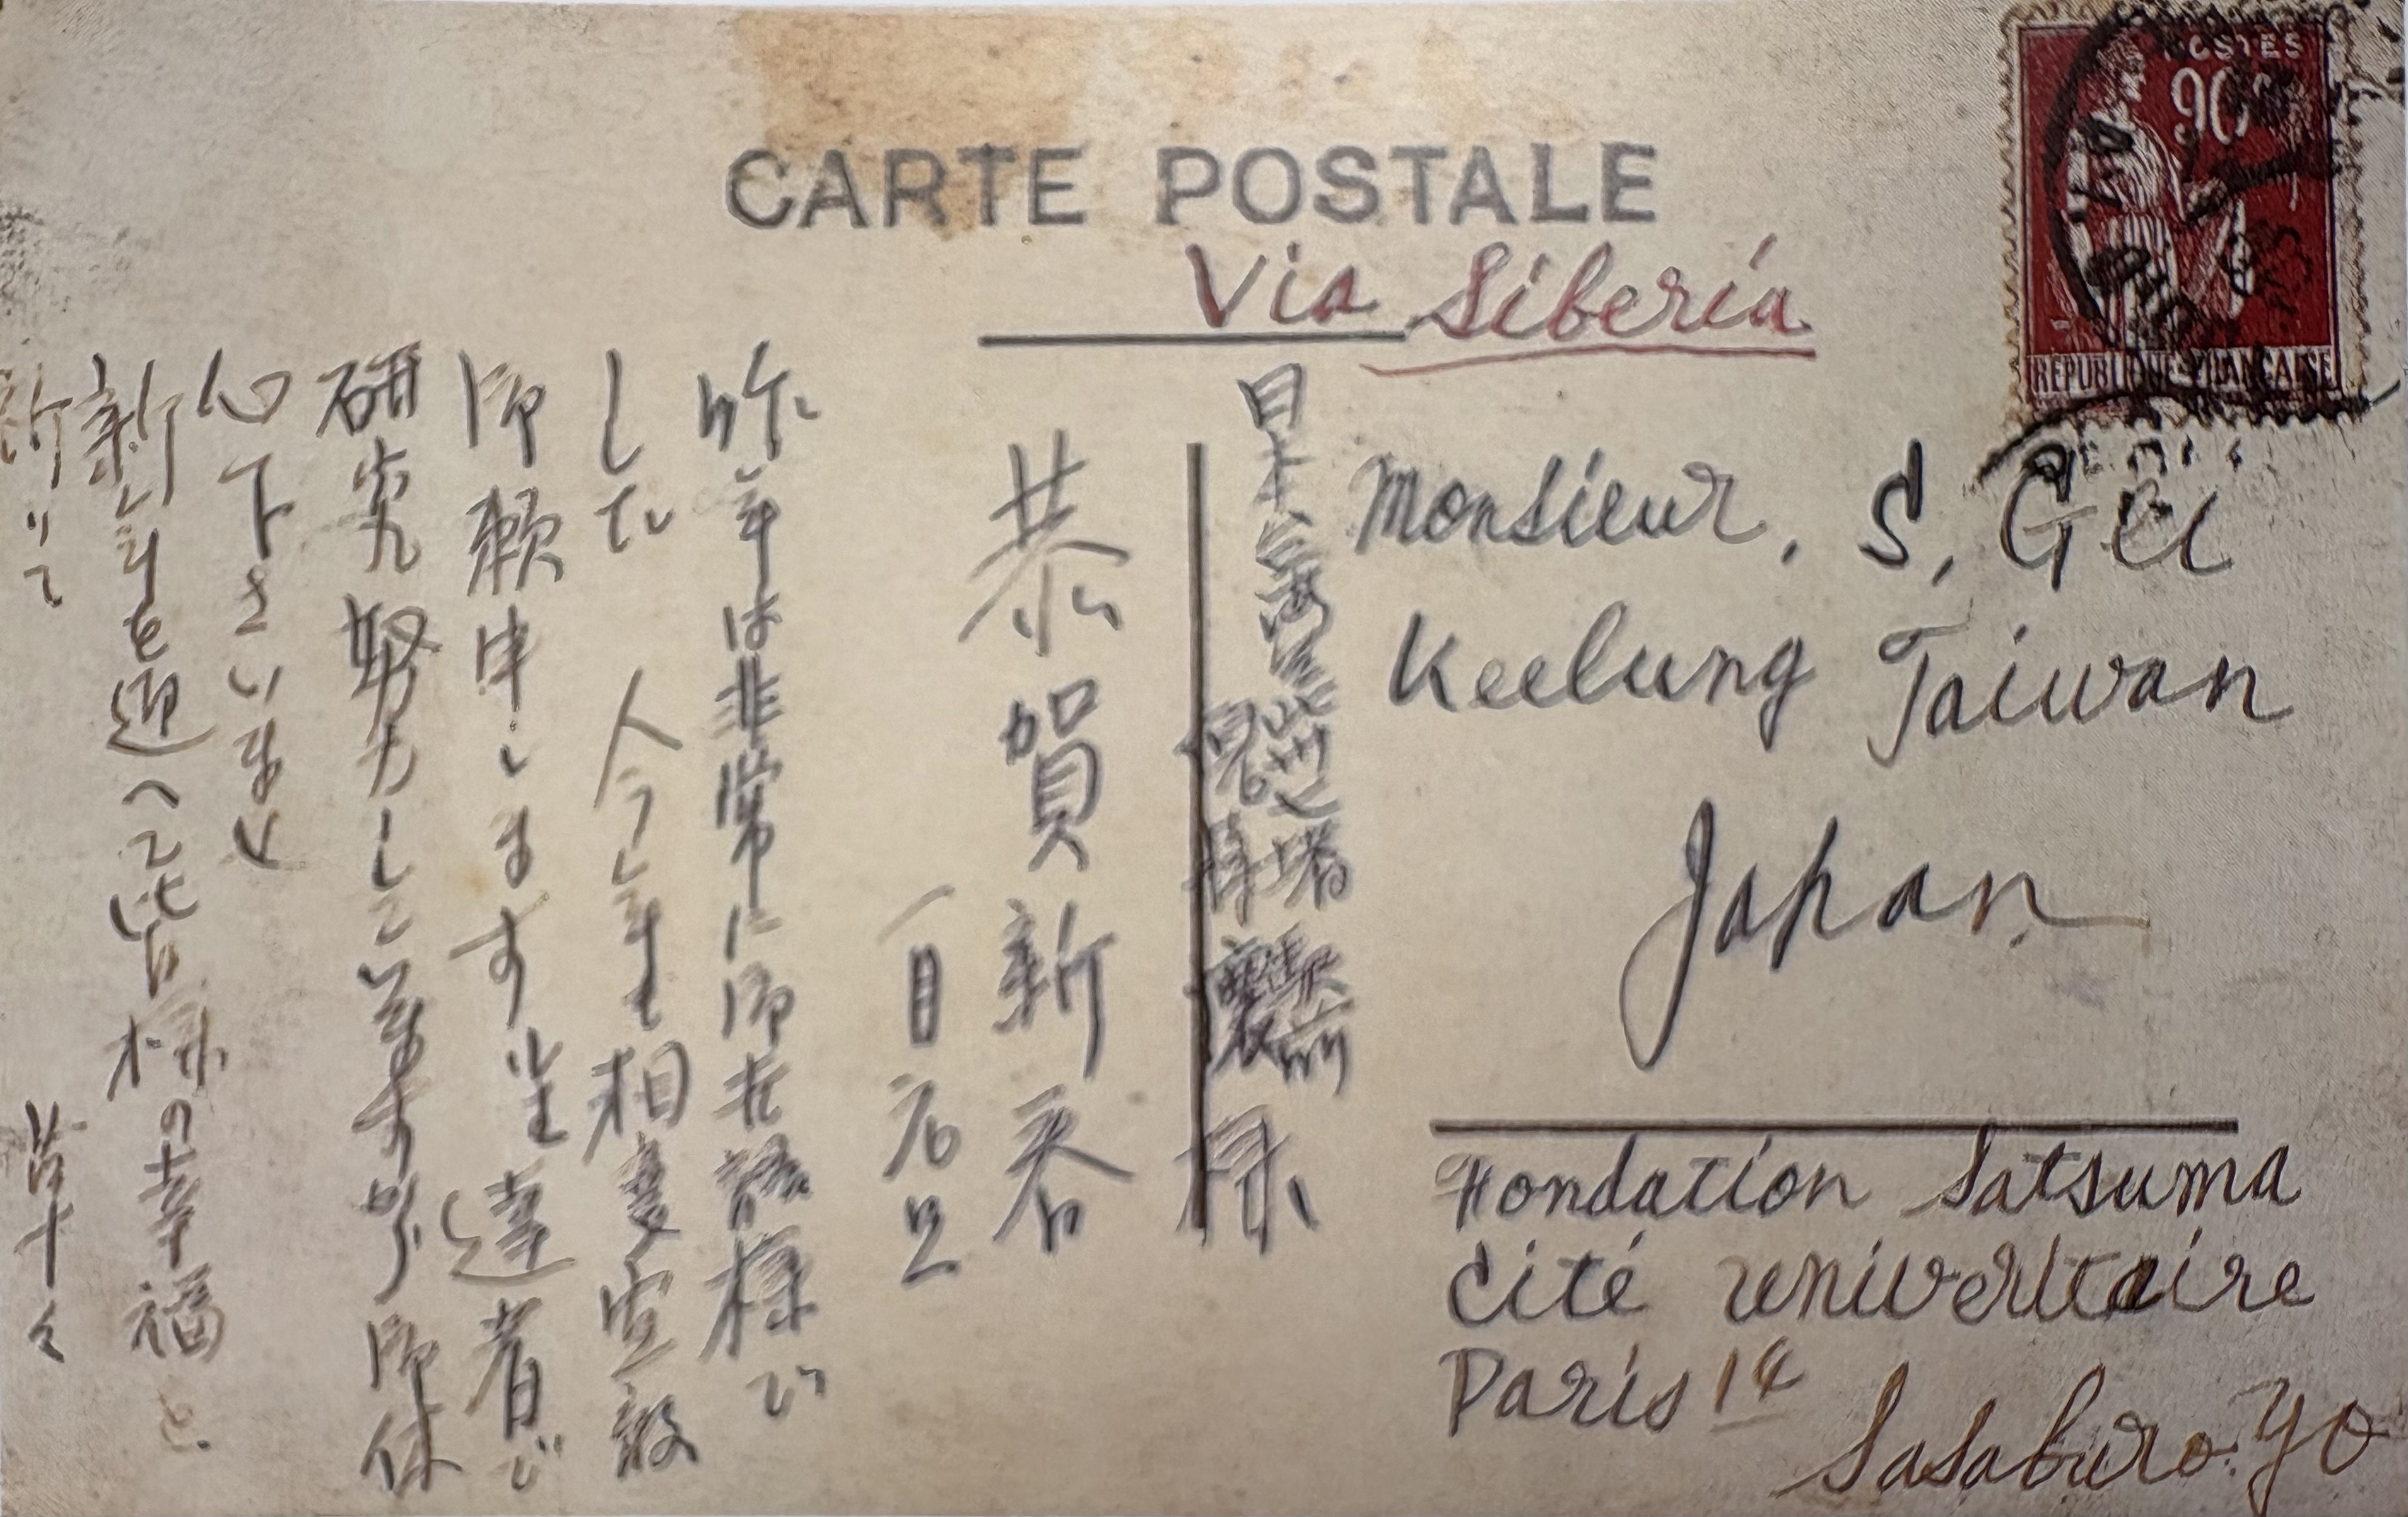 CARTE POSTALE
Via Siberia
POSTES
90c
REPUBLIQUE FRANCAISE
Monsieur, S, Gei
Keelung Taiwan
Japan
日本台湾基
様
恭賀新春
一月元旦
昨年は非常に御世話様で
した 今年も相変宜敷
御頼申します 小生達者で
研究努力して居ますから御休
心下さいませ
新年を迎へて皆様の幸福を
祈りて
草々
Fondation Satsuma
Cité Univertaire
Paris 14
Sasaburo. Yo